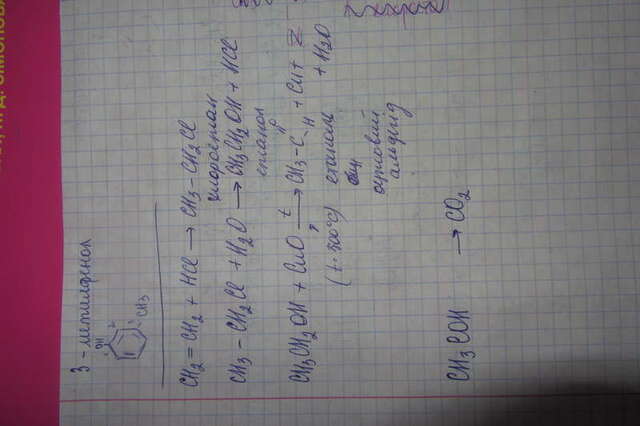 3 - метилфенол
OH
CH3
CH2 = CH2 + HCl → CH3 - CH2Cl
хлороетан
CH3 - CH2Cl + H2O → CH3CH2OH + HCl
етанол
CH3CH2OH + CuO t→ CH3 - C O H + Cu + H2O
(t. 300°C)
етаналь
оцтовий
альдегід
CH3COH → CO2